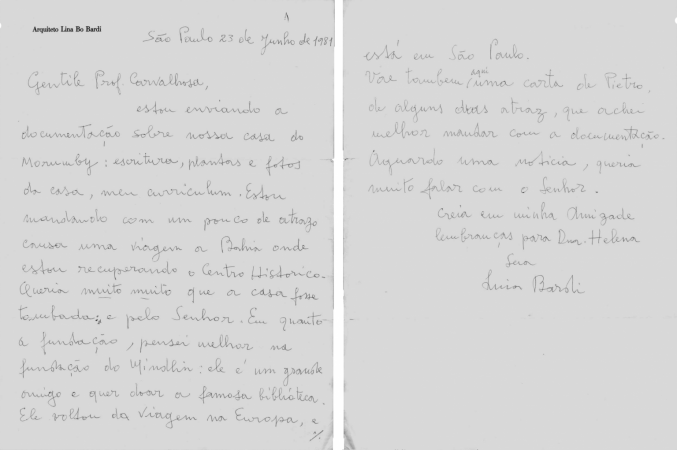 Arquiteto Lina Bo Bardi
1
São Paulo 23 de Junho de 1981
Gentile Prof Carvalhosa,
estou enviando a
documentação sobre nossa casa do
Morumby: escritura, plantas e fotos
da casa, meu curriculum. Estou
mandando com um pouco de atrazo
causa uma viagem a Bahia onde
estou recuperando o Centro Historico.
Queria muito muito que a casa fosse
tombada, e pelo Senhor. Em quanto
a fundação, pensei melhor na
fundação do Mindlin: ele é um grande
amigo e quer doar a famosa biblióteca.
Ele voltou da viagem na Europa, e
./.
está em São Paulo.
Vae tambem aqui uma carta de Pietro,
de alguns dias atraz, que achei
melhor mandar com a documentação.
Aguardo uma noticia, queria
muito falar com o Senhor.
Creia em minha Amizade
lembranças para Dna. Helena
Sua
Lina Bardi